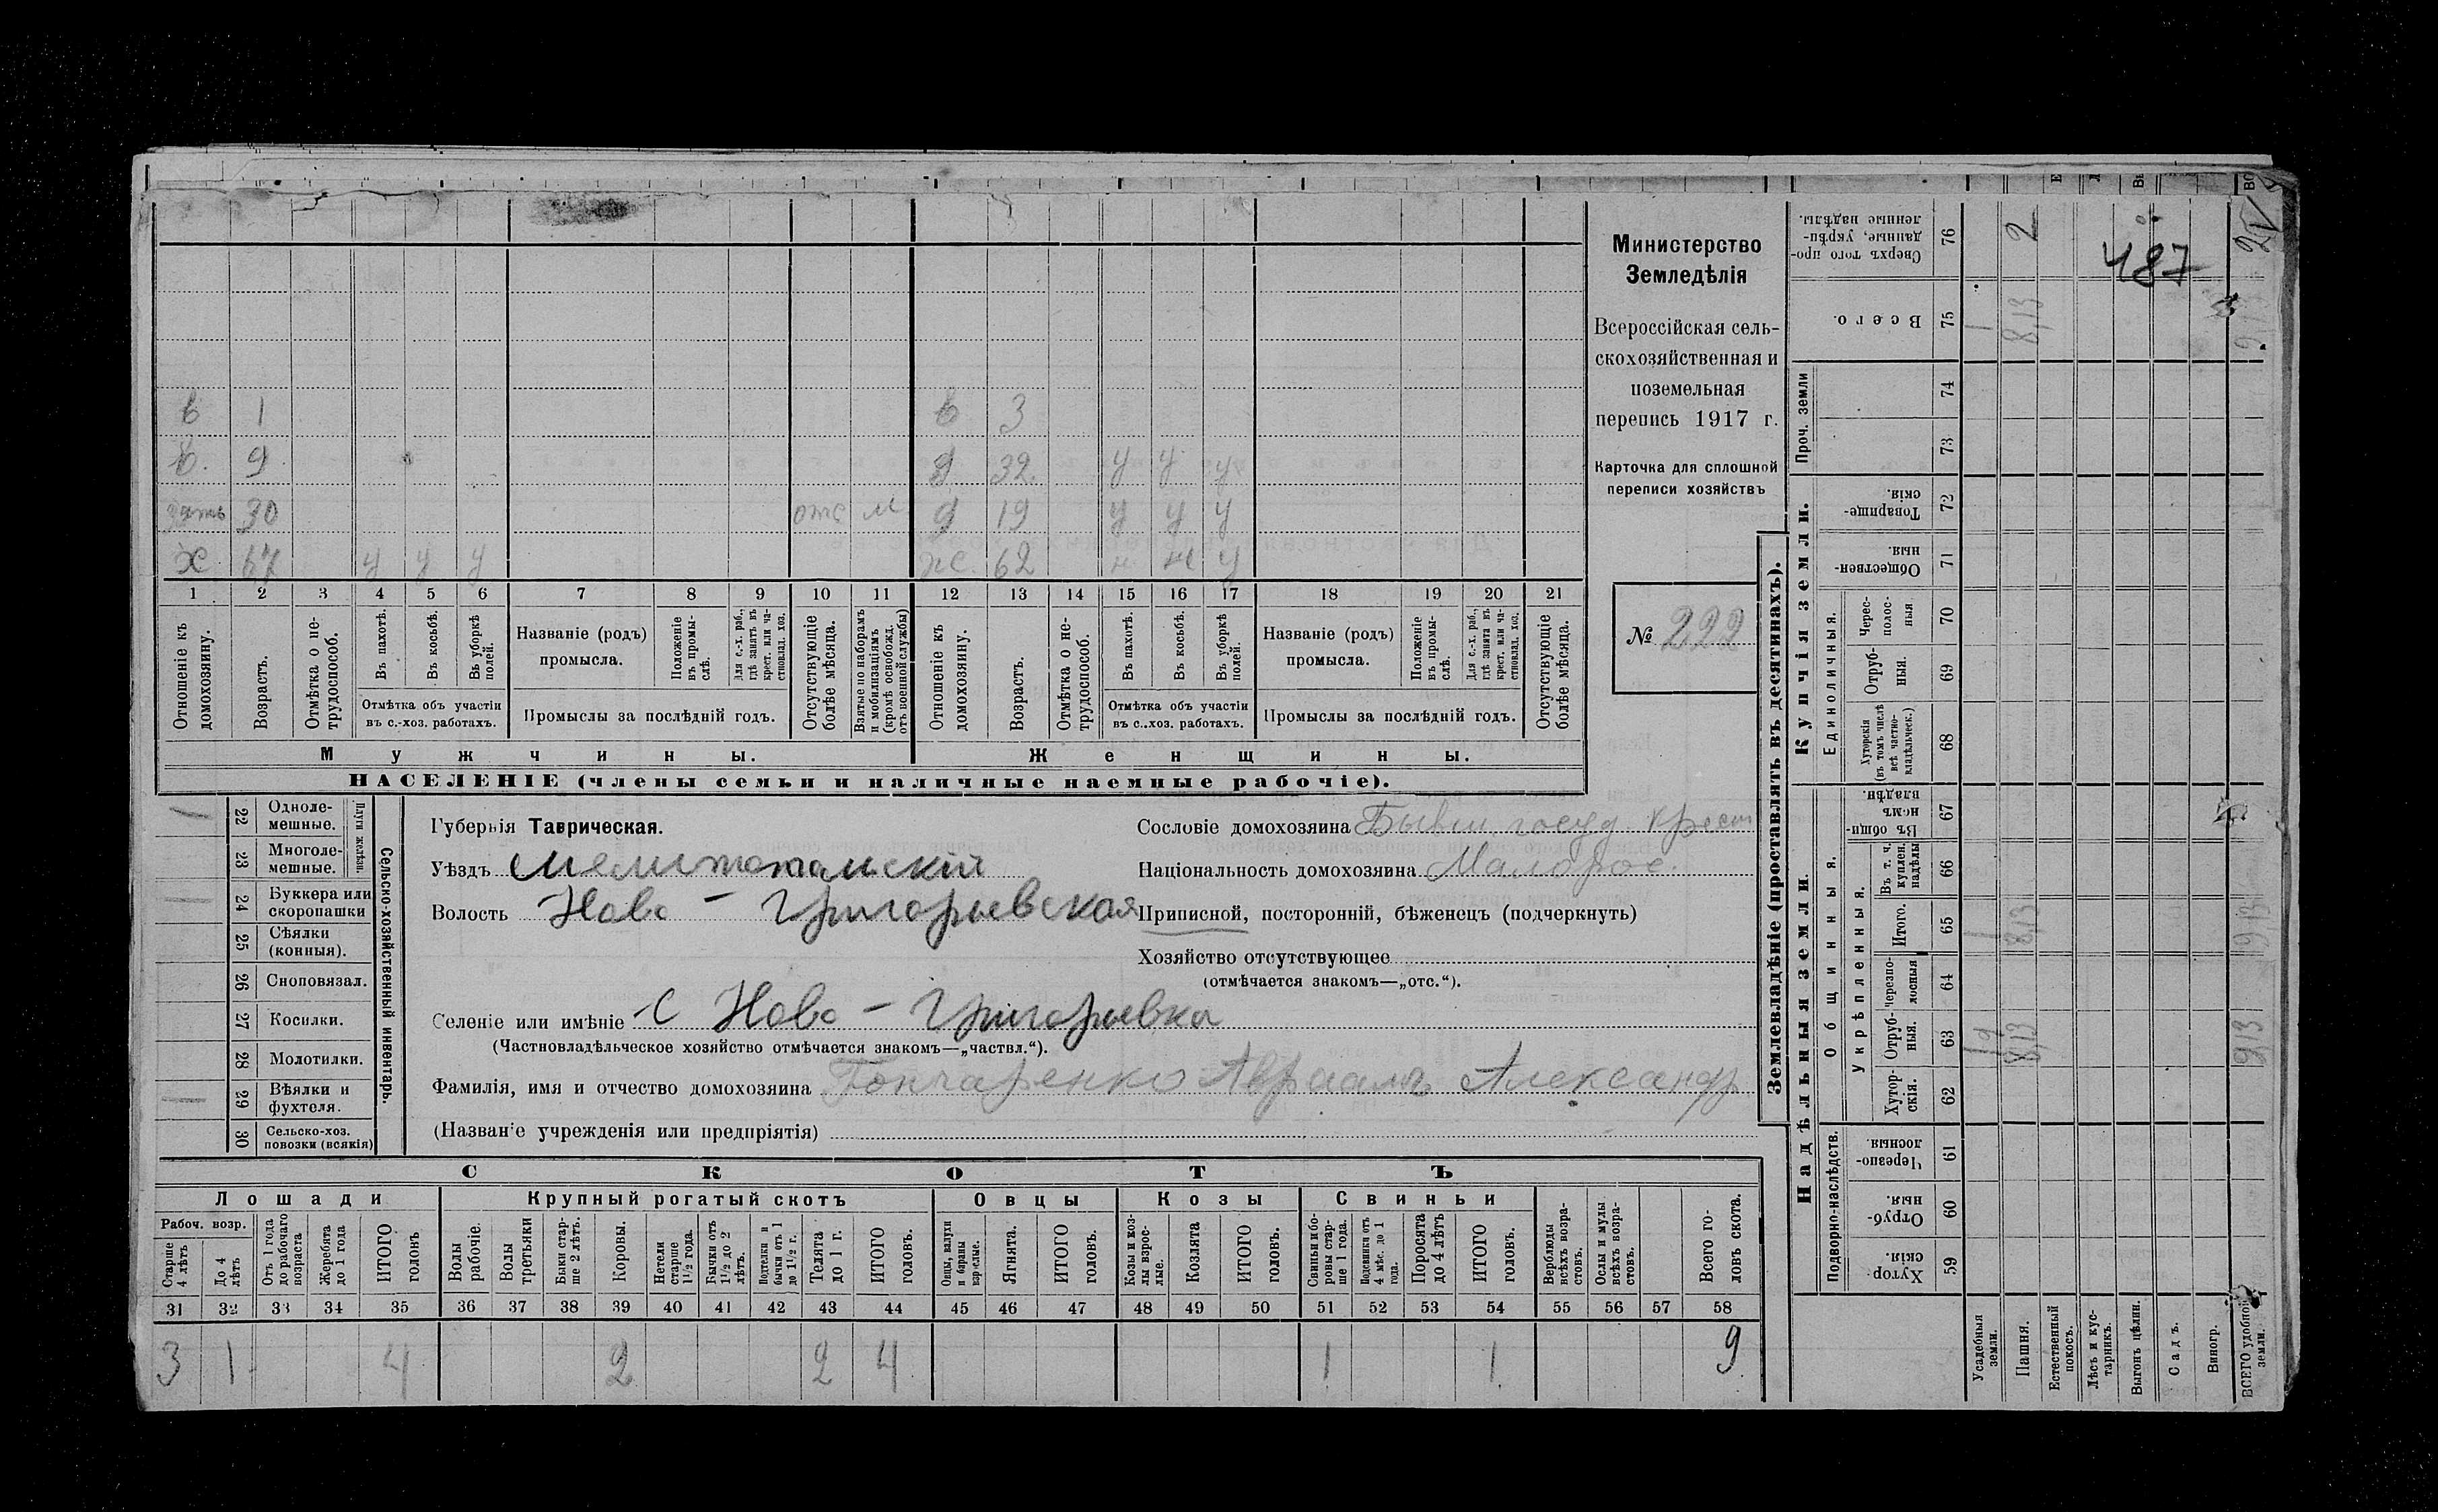 Министерство
Земледѣлія
Всероссійская сель-
скохозяйственная и
поземельная
перепись 1917 г.
Карточка для сплошной
переписи хозяйствъ
№ 222
487
в 1 в 3
в. 9 д 32. у у у
зять 30 отс м д 19 у у у
х 67 у у у ж. 62 н н у
1 2 3 4 5 6 7 8 9 10 11 12 13 14 15 16 17 18 19 20 21
Отношеніе къ домохозяину.
Возрастъ.
Отмѣтка о не-трудоспособ.
Въ пахотѣ.
Въ косьбѣ.
Въ уборкѣ полей.
Отмѣтка объ участіи въ с.-хоз. работахъ.
Названіе (родъ) промысла.
Положеніе въ промы-слѣ.
Для с.-х. раб., гдѣ занятъ въ крест. или ча-стновлад. хоз.
Промыслы за послѣдній годъ.
Отсутствующіе болѣе мѣсяца.
Взятые по наборамъ и мобилизаціямъ (кромѣ освобожд. отъ военной службы)
Отношеніе къ домохозяину.
Возрастъ.
Отмѣтка о не-трудоспособ.
Въ пахотѣ.
Въ косьбѣ.
Въ уборкѣ полей.
Отмѣтка объ участіи въ с..хоз. работахъ.
Названіе (родъ) промысла.
Положеніе въ промы-слѣ.
Для с.-х. раб., гдѣ занята въ крест. или ча-стновлад. хоз.
Промыслы за послѣдній годъ.
Отсутствующіе болѣе мѣсяца.
Мужчины. Женщины.
НАСЕЛЕНІЕ (члены семьи и наличные наемные рабочіе).
Сельско-хозяйственный инвентарь.
Плуги желѣзн.
1 22 Одноле-мешные.
23 Многоле-мешные.
1 24 Буккера или скоропашки
25 Сѣялки (конныя).
26 Сноповязал.
27 Косилки.
28 Молотилки.
1 29 Вѣялки и фухтеля.
30 Сельско-хоз. повозки (всякія)
Губернія Таврическая.
Уѣздъ Мелитопольскій
Волость Ново-Григорьевская
Селеніе или имѣніе С Ново-Григорьевка
(Частновладѣльческое хозяйство отмѣчается знакомъ—„частвл.“).
Фамилія, имя и отчество домохозяина Гончаренко Авраамъ Александр
(Названіе учрежденія или предпріятія)
Сословіе домохозяина Бывш. госуд крест
Національность домохозяина Малорос.
Приписной, посторонній, бѣженецъ (подчеркнуть)
Хозяйство отсутствующее
(отмѣчается знакомъ—„отс.“).
СКОТЪ
Лошади Крупный рогатый скотъ Овцы Козы Свиньи
Рабоч. возр.
Старше 4 лѣтъ
До 4 лѣтъ
Отъ 1 года до рабочаго возраста
Жеребята до 1 года
ИТОГО головъ
Волы рабочіе
Волы третьяки
Быки стар-ше 2 лѣтъ.
Коровы.
Нетели старше 1½ года.
Бычки отъ 1½ до 2 лѣтъ.
Подтелки и бычки отъ 1 до 1½ г.
Телята до 1 г.
ИТОГО головъ.
Овцы, валухи и бараны взрослые.
Ягнята.
ИТОГО головъ.
Козы и коз-лы взрос-лые.
Козлята
ИТОГО головъ.
Свиньи и бо-ровы стар-ше 1 года.
Подсвинки отъ 4 мѣс. до 1 года.
Поросята до 4 лѣтъ
ИТОГО головъ.
Верблюды всѣхъ возра-стовъ.
Ослы и мулы всѣхъ возра-стовъ.
Всего го-ловъ скота.
31 32 33 34 35 36 37 38 39 40 41 42 43 44 45 46 47 48 49 50 51 52 53 54 55 56 57 58
3 1 4 2 2 4 1 1 9
Землевладѣніе (проставлять въ десятинахъ).
Надѣльныя земли.
Купчія земли.
Проч. земли
Подворно-наслѣдств.
Общинныя.
Укрѣпленныя.
Единоличныя.
Сверхъ того про-данные, укрѣп-ленные надѣлы. 76 2
Всего. 75 1 8,13 9,13
74
73
Товарище-скія. 72
Обществен-ныя. 71
Черес-полос-ныя 70
Отруб-ныя. 69
Хуторскія (въ томъ числѣ всѣ частно-владѣльческ.) 68
Въ общин-номъ владѣн. 67
Въ т. ч. куплен. надѣлы 66
Итого. 65 1 8,13 9,13
Черезпо-лосныя 64
Отруб-ныя. 63 1 8,13 9,13
Хутор-скія. 62
Черезпо-лосныя 61
Отруб-ныя. 60
Хутор-скія. 59
Усадебныя земли.
Пашня.
Естественный покосъ.
Лѣсъ и кус-тарникъ.
Выгонъ цѣлин.
Садъ.
Виногр.
ВСЕГО удобной земли.